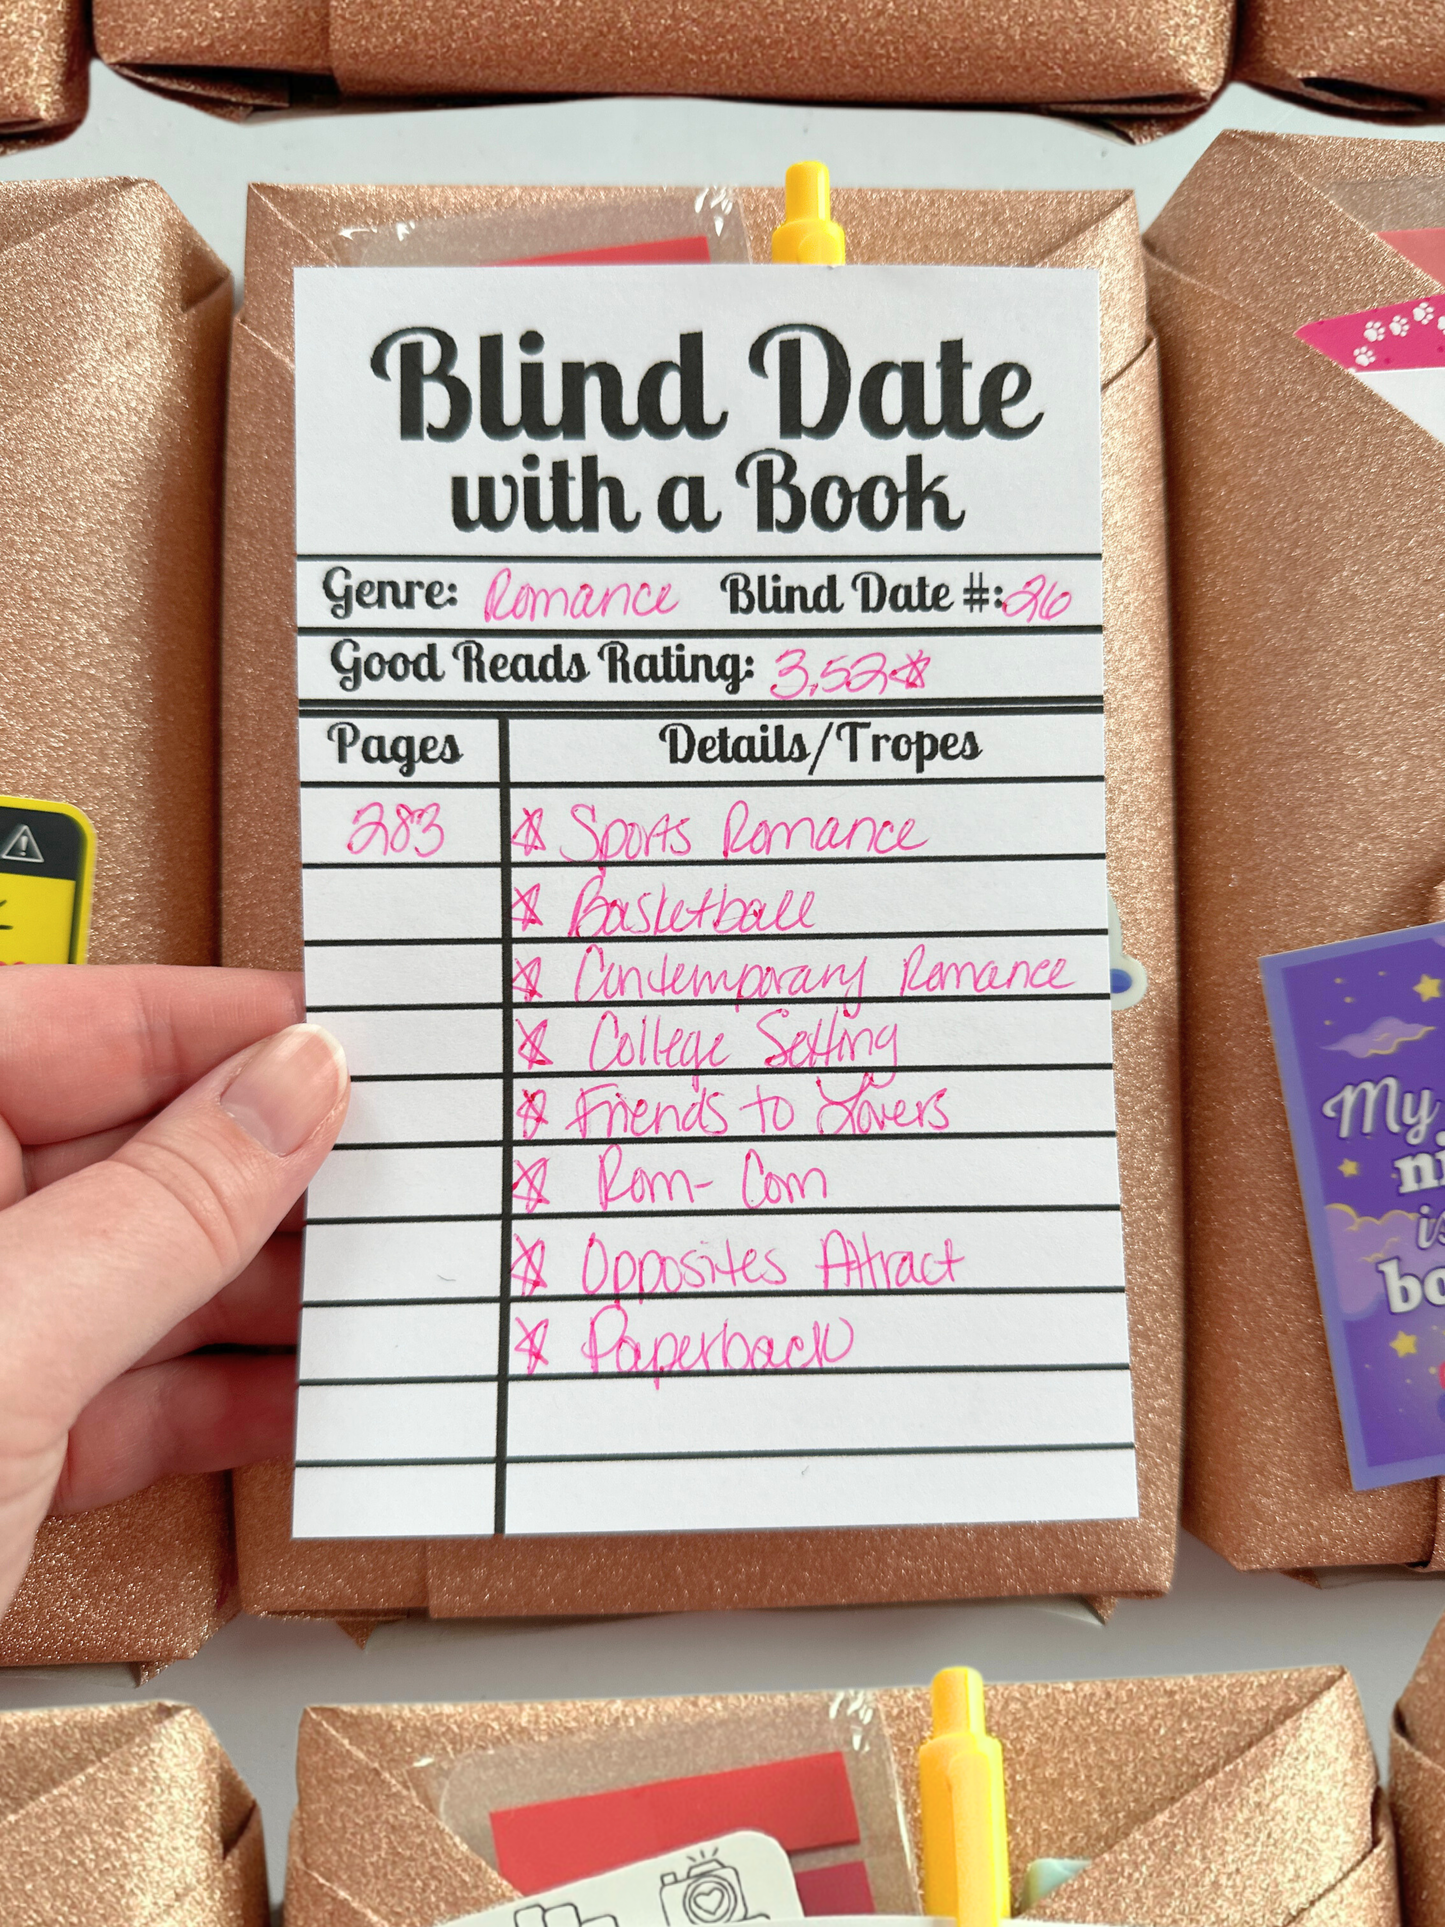 Blind Date
with a Book
Genre: Romance Blind Date #: 26
Good Reads Rating: 3.52☆
Pages Details/Tropes
283 ☆ Sports Romance
☆ Basketball
☆ Contemporary Romance
☆ College Setting
☆ Friends to Lovers
☆ Rom-Com
☆ Opposites Attract
☆ Paperback
My